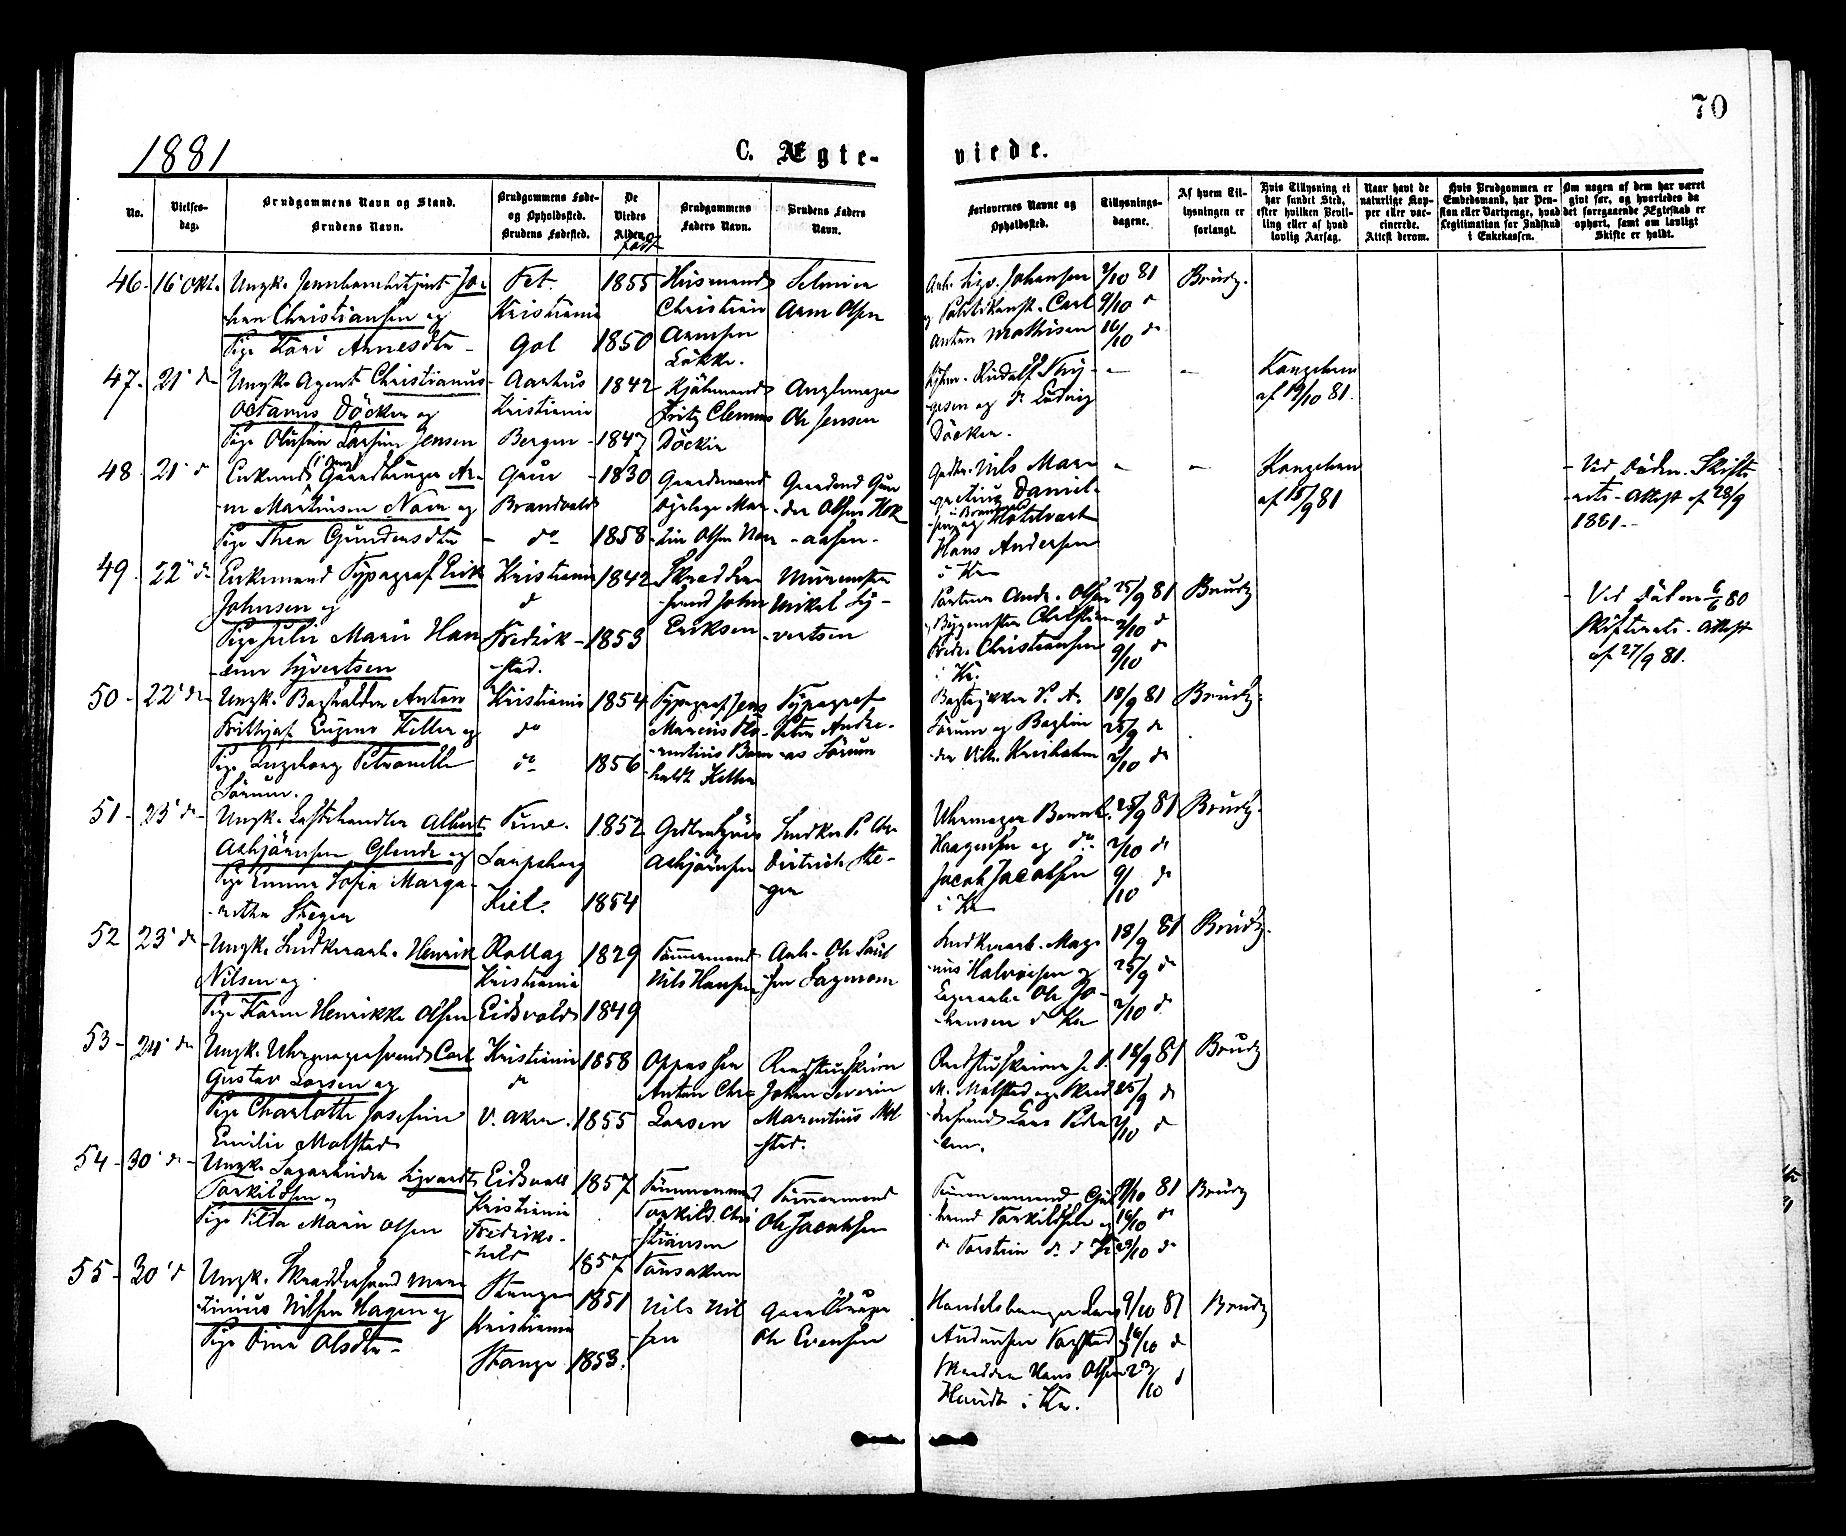 70
1881
C. Ægte-
viede.
No.
Vielses-
dag.
Brudgommens Navn og Stand.
Brudens Navn.
Brudgommens Føde-
og Opholdssted.
Brudens Fødested.
De
Viedes
Alder.
født
Brudgommens
Faders Navn.
Brudens Faders
Navn.
Forlovernes Navne og
Opholdssted.
Tillysnings-
dagene.
Af hvem Til-
lysningen er
forlangt.
Hvis Tillysning ei
har fundet Sted,
efter hvilken Bevil-
ling eller af hvad
lovlig Aarsag.
Naar havt de
naturlige Kop-
per eller vac-
cinerede.
Attest derom.
Hvis Brudgommen er
Embedsmand, har Pen-
sion eller Vartpenge, hvad
Legitimation for Indskud
i Enkekassen.
Om nogen af dem har været
gift før, og hvorledes da
det foregaaende Ægteskab er
ophørt, samt om lovligt
Skifte er holdt.
46 - 16' Okt.
Ungk. Jo-
han Christiansen og
Pige Kari Arnesdtr
Fet
Kristiania
Gol
1855
1850
Husmand
Christian
Arnesen
Løkke.
Selveier
Arne Olsen
Arb. Sigv. Johansen
og Carl
Anton Mathisen
2/10 81
9/10 d
16/10 do
Brudg.
47 - 21' do
Ungk. Agent Christianus
Octavius Döcker og
Pige Jensen
Aarhus
Kristiania
Bergen
1842
1847
Kjøbmand
Fritz Clemens
Döcker
Ole Jensen
Kjbm. Rudolf Thy-
gesen og do Ludvig
Döcker.
-
-
Kongebrev
af 19/10 81.
48 - 21' d
Enkemand Gaardbruger Ar-
ne Martinsen Noer og
Pige Thea Gundersdtr
Grue
Brandvold
do
1830
1858
Gaardmand
Mar-
tin Olsen Noer
Gaardmd Gun-
der Olsen
-aasen.
Gbr. Nils Mare-
Daniel-
sen og
Hans Andersen
i Kr
-
-
Kongebrev
af 15/9 81
Ved Døden. Skifte-
rets- Attest af 28/9
1881.
49 - 22' do
Enkemand Typograf Erik
Johnsen og
Pige Julie Marie Han-
sine Syvertsen
Kristiania
d
Fredrik-
stad.
1842
1853
Skrædder-
svend John
Eriksen
Murmester
Mikal Sy-
vertsen
Andr. Olsen
Bygmester Christian
Fredr. Christiansen
i Kr.
25/9 81
2/10 d
9/10 do
Brudg
Ved Døden 6/6 80
Skifterets- Attest
af 27/9 81.
50 - 22' do
Ungk. Bogholder Anton
Frithjof Eugen Keller og
Pige Ingeborg Petronelle
Sørum.
Kristiania
do
do
1854
1856
Typograf Jens
Marius Flo-
rentius Born-
holdt Keller
Typograf
Peter Andre-
as Sørum
Bogtrykker P. A.
Sørum og Bogbin-
der Vilh.
18/9 81
25/9 do
2/10 do
Brudg.
51 - 23' do
Ungk. Albert
Asbjørnsen Glende og
Pige Emma Sofia Marga-
retha Steger
Tune.
Sarpsborg
Kiel.
1852
1854
Asbjørnsen
Snedker
Dietrich Ste-
ger
Uhrmager Bernh.
Haagensen og do
Jacob Jacobsen
i Kr
25/9 81
2/10 do
9/10 do
Brudg.
52 23' do
Ungk. Snedkerarb. Henrik
Nilsen og
Pige Karen Henrikke Olsen
Rollag
Kristiania
Eidsvold
1829
1849
Tømmermand
Nils Hansen
Arb. Ole Paul-
sen
Snedkerarb. Mag-
nus Halvorsen og
Ole Jo-
hansen d Kr
18/9 81
25/9 do
2/10 do
Brudg.
53 - 24' do
Ungk. Uhrmagersvend Carl
Gustav Larsen og
Pige Charlotte Josefine
Emilie Molstad
Kristiania
do
V. Aker.
1858
1855
Oppasser
Anton Chr.
Larsen
Johan Severin
Marentius Mol-
stad.
M. Molstad og Skræd-
dersvend Lars Peder-
sen.
18/9 81
25/9 do
2/10 do
Brudg
54 - 30' do
Ungk. Sigvard
Torkildsen og
Pige Tilda Marie Olsen
Eidsvold
Kristiania
Fredriks-
hald
1857
1857
Tømmermand
Torkild Chri-
stiansen
Tønsaker
Tømmermand
Ole Jacobsen
Tømmermand Gul-
brand Torkildsen og
do Torstein do d Kr
9/10 81
16/10 do
23/10 do
Brudg
55 - 30' d
Ungk. Skræddersvend Mar-
tinius Nilsen Hagen og
Pige Tina Olsdtr
Stange
Kristiania
Stange
1851
1853.
Nils Nil-
sen
Gaardbruger
Ole Evensen
Handelsborger Lars
Skrædder Hans Olsen
i Kr.
9/10 81
16/10 do
23/10 d
Brudg